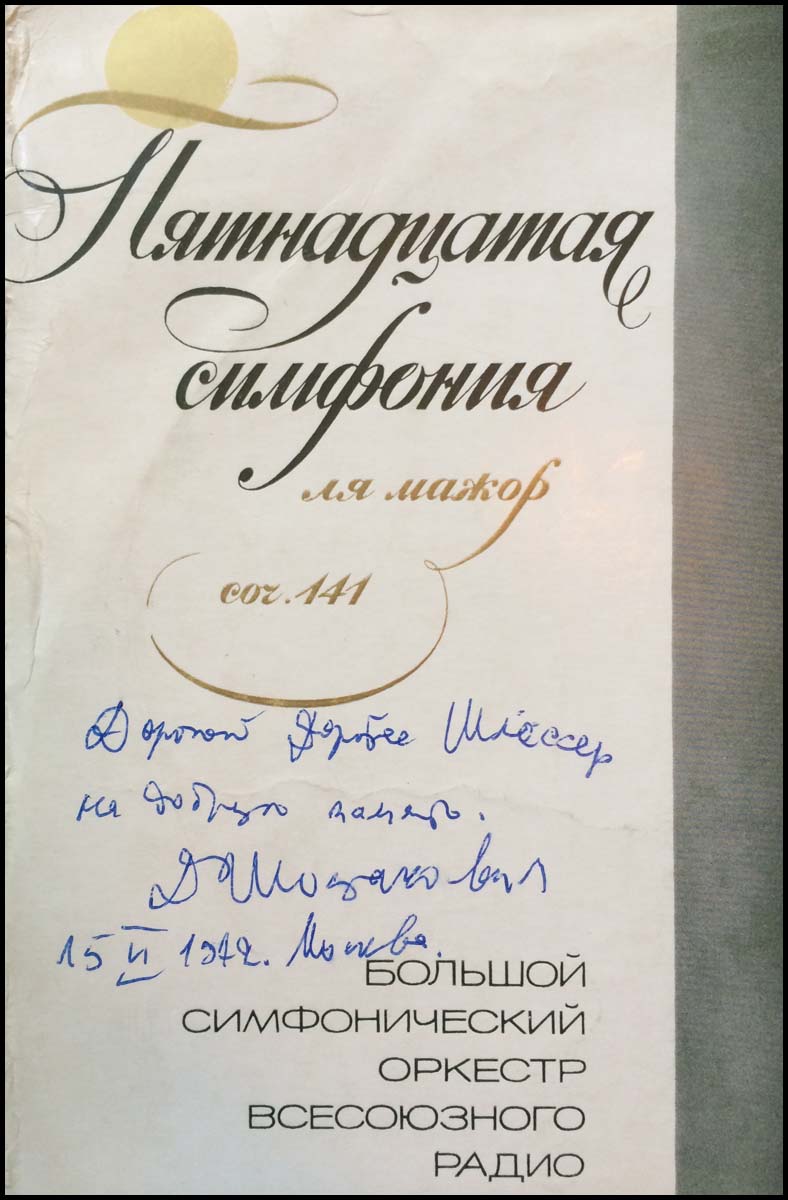 Пятнадцатая
симфония
ля мажор
соч. 141
Дорогой Доротее Шлёссер
на добрую память.
ДШостакович
15 VI 1972. Москва.
БОЛЬШОЙ
СИМФОНИЧЕСКИЙ
ОРКЕСТР
ВСЕСОЮЗНОГО
РАДИО